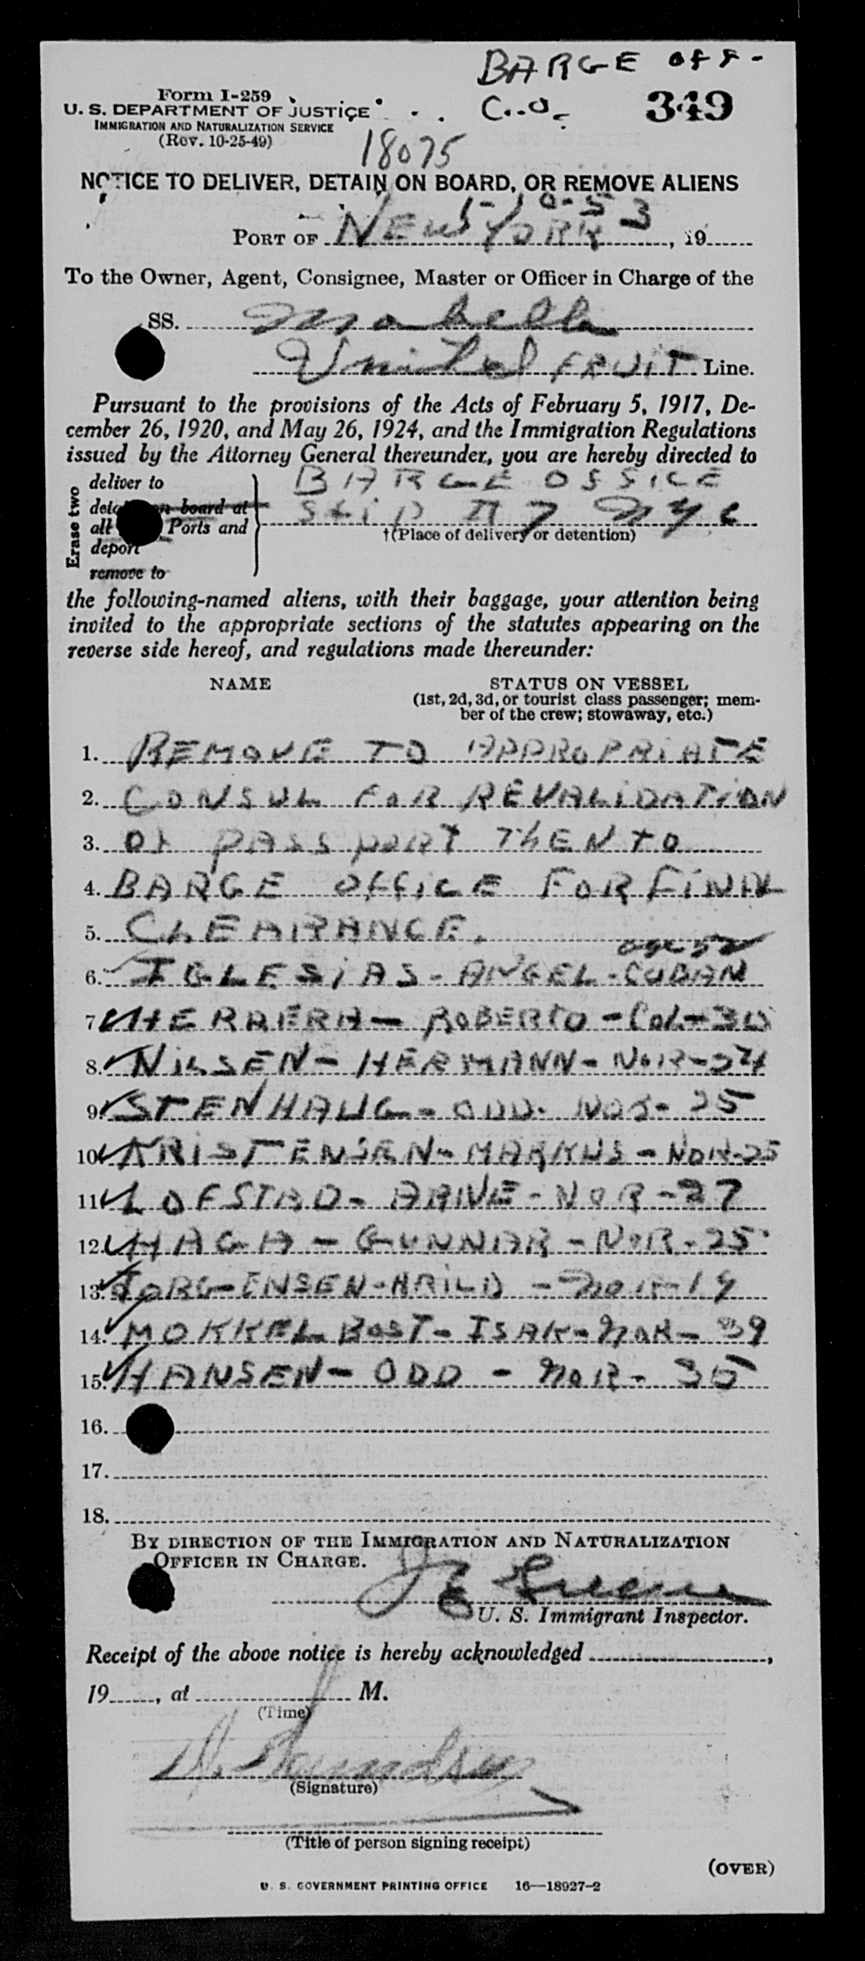 BARGE OFF-
Form I-259
U. S. DEPARTMENT OF JUSTICE
C.O. 349
IMMIGRATION AND NATURALIZATION SERVICE
(Rev. 10-25-49)
18075
NOTICE TO DELIVER, DETAIN ON BOARD, OR REMOVE ALIENS
1-10-53
PORT OF NEW YORK, 19
To the Owner, Agent, Consignee, Master or Officer in Charge of the
SS. Mabella
United FRUIT Line.
Pursuant to the provisions of the Acts of February 5, 1917, De-
cember 26, 1920, and May 26, 1924, and the Immigration Regulations
issued by the Attorney General thereunder, you are hereby directed to
Erase two
deliver to BARGE OFFICE
on board at SLIP #7 NYC
all Ports and †(Place of delivery or detention)
deport
remove to
the following-named aliens, with their baggage, your attention being
invited to the appropriate sections of the statutes appearing on the
reverse side hereof, and regulations made thereunder:
NAME STATUS ON VESSEL
(1st, 2d, 3d, or tourist class passenger; mem-
ber of the crew; stowaway, etc.)
1. REMOVE TO APPROPRIATE
2. CONSUL FOR REVALIDATION
3. OF PASSPORT THEN TO
4. BARGE OFFICE FOR FINAL
5. CLEARANCE.
age 52
6. IGLESIAS - ANGEL - CUBAN
7. HERRERA - ROBERTO - Col. - 30
8. NILSEN - HERMANN - NOR - 24
9. STENHAUG - ODD - NOR - 25
10. KRISTENSEN - MARKUS - NOR - 25
11. LOFSTAD - ARNE - NOR - 27
12. HAGA - GUNNAR - NOR - 25
13. JORGENSEN - ARILD - NOR - 19
14. MOKKELBOST - ISAK - NOR - 39
15. HANSEN - ODD - NOR - 35
16.
17.
18.
BY DIRECTION OF THE IMMIGRATION AND NATURALIZATION
OFFICER IN CHARGE.
U. S. Immigrant Inspector.
Receipt of the above notice is hereby acknowledged ,
19 , at M.
(Time)
(Signature)
(Title of person signing receipt)
(OVER)
U. S. GOVERNMENT PRINTING OFFICE 16—18927-2